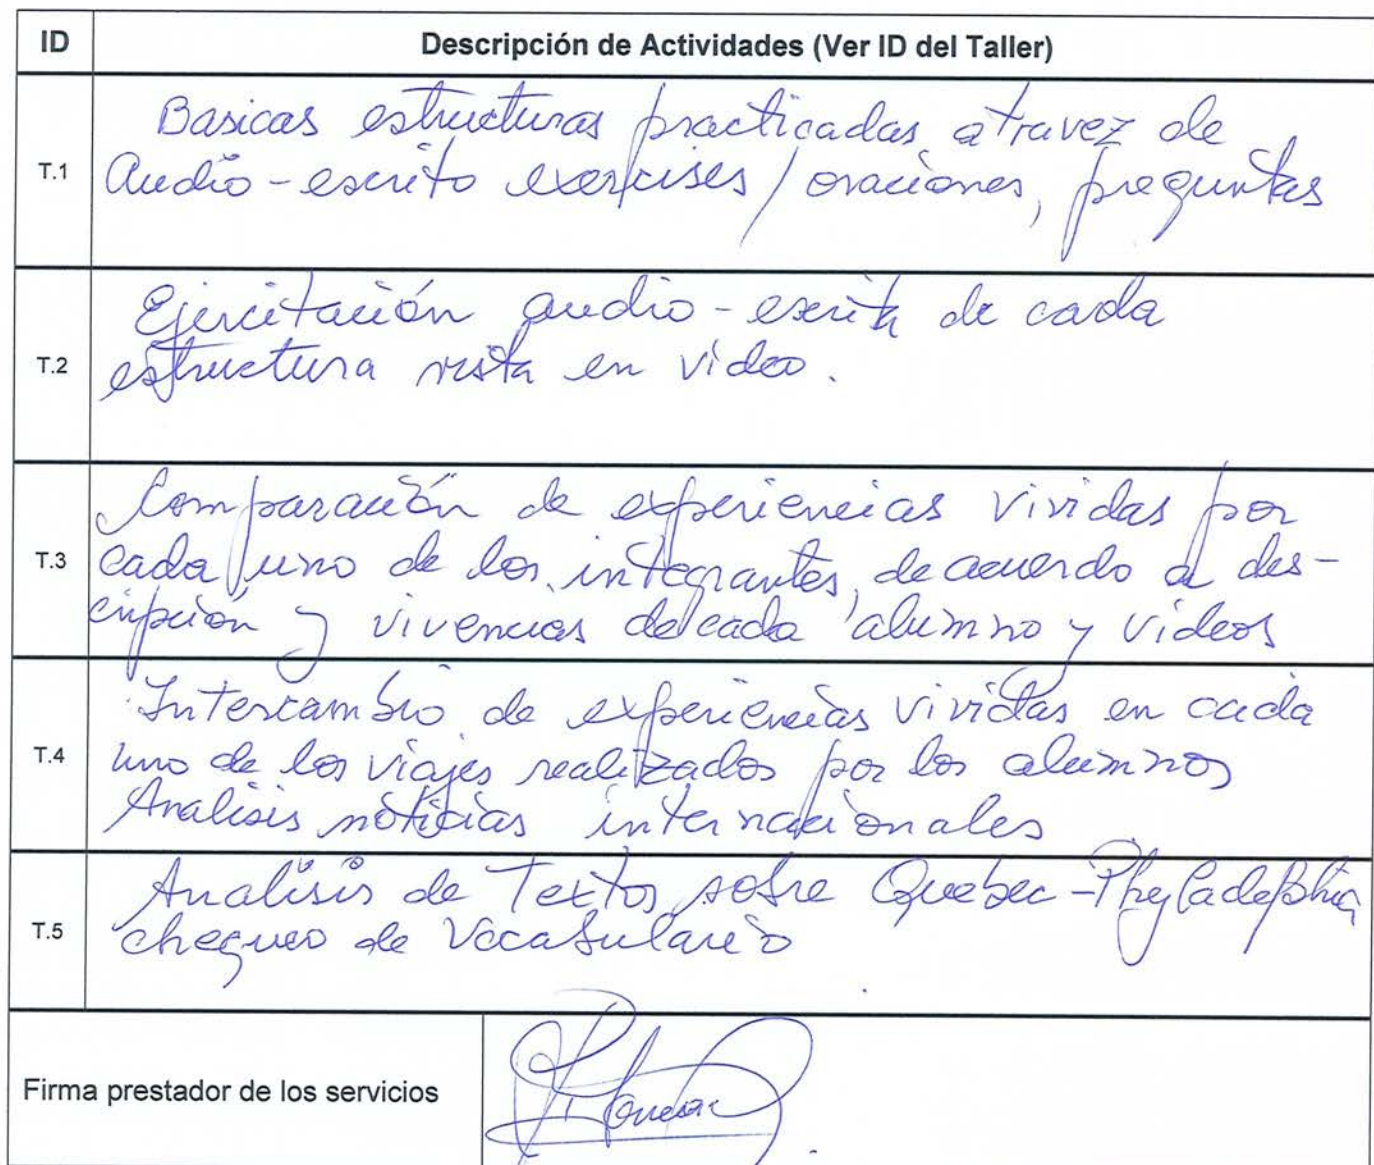 ID Descripción de Actividades (Ver ID del Taller)
T.1 Basicas estructuras practicadas atravez de
Audio-escrito exercises / oraciones, preguntas
T.2 Ejercitación audio-escrita de cada
estructura vista en video.
T.3 Comparación de experiencias vividas por
cada uno de los integrantes, de acuerdo a des-
cripción y vivencias de cada alumno y videos
T.4 Intercambio de experiencias vividas en cada
uno de los viajes realizados por los alumnos
Analisis noticias internacionales
T.5 Analisis de Textos sobre Quebec - Phyladelphia
chequeo de Vocabulario
Firma prestador de los servicios